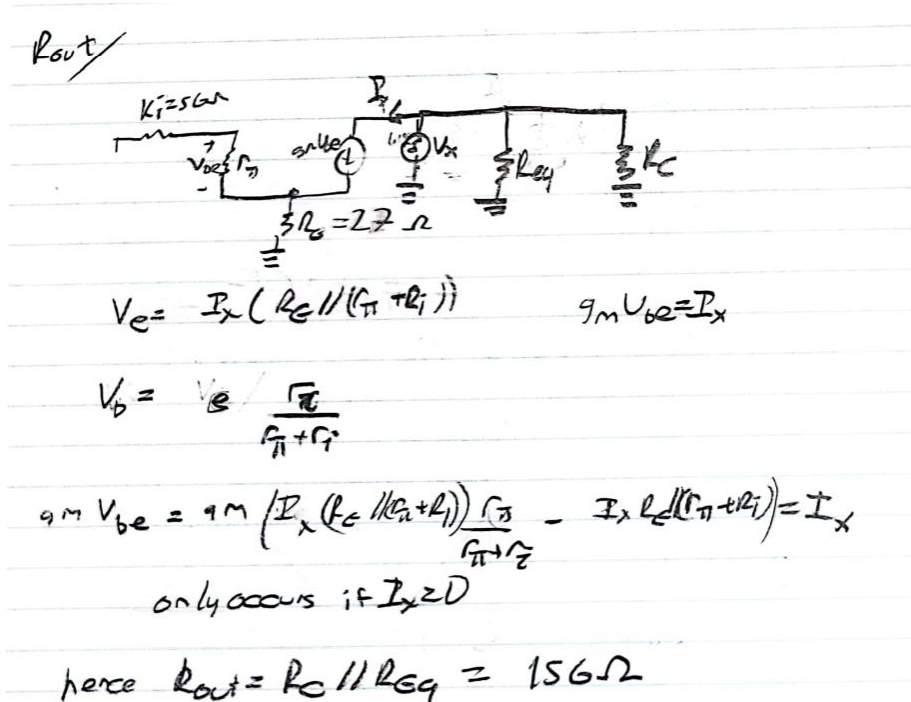 Rout/
Ri=56Ω
+
Vbe rπ
-
gmVbe
Ix
Vx
Req
RC
RE=27Ω
Ve= Ix(RE//(rπ+Ri)) gmVbe=Ix
Vb= Ve rπ/(rπ+ri)
gm Vbe = gm(Ix(RE//(rπ+Ri)) rπ/(rπ+ri) - Ix RE//(rπ+Ri))=Ix
only occurs if Ix=0
hence Rout= RC//REq = 156Ω